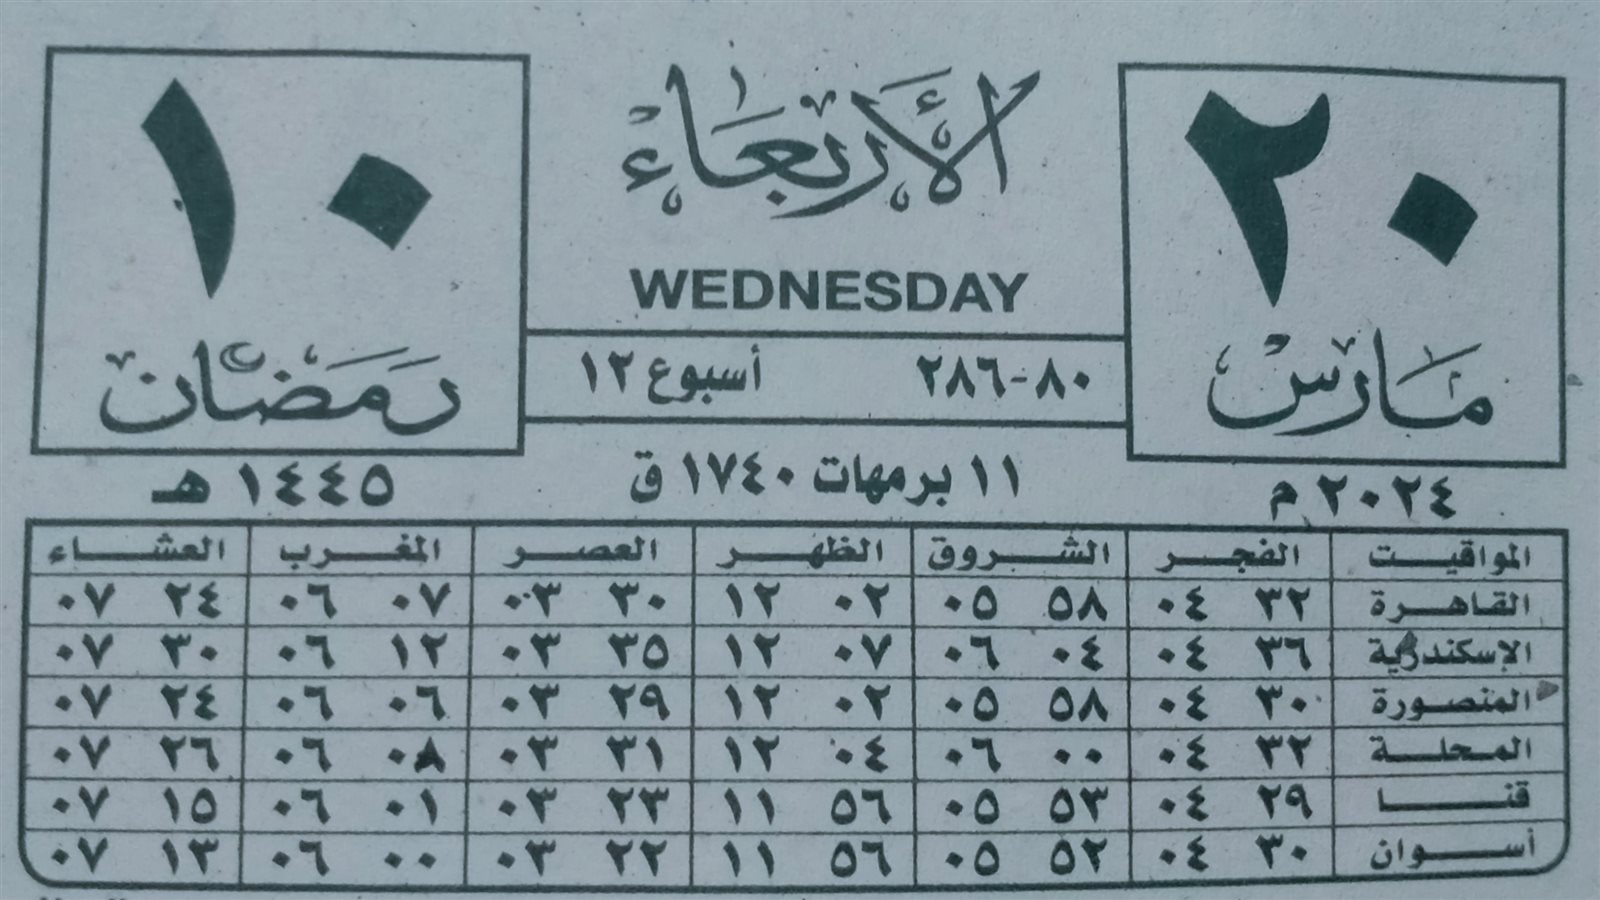 ٢٠
مارس
٢٠٢٤ م
الأربعاء
WEDNESDAY
٨٠-٢٨٦ أسبوع ١٢
١١ برمهات ١٧٤٠ ق
١٠
رمضان
١٤٤٥ هـ
المواقيت الفجر الشروق الظهر العصر المغرب العشاء
القاهرة ٣٢ ٠٤ ٥٨ ٠٥ ٠٢ ١٢ ٣٠ ٠٣ ٠٧ ٠٦ ٢٤ ٠٧
الإسكندرية ٣٦ ٠٤ ٠٤ ٠٦ ٠٧ ١٢ ٣٥ ٠٣ ١٢ ٠٦ ٣٠ ٠٧
المنصورة ٣٠ ٠٤ ٥٨ ٠٥ ٠٢ ١٢ ٢٩ ٠٣ ٠٦ ٠٦ ٢٤ ٠٧
المحلة ٣٢ ٠٤ ٠٠ ٠٦ ٠٤ ١٢ ٣١ ٠٣ ٠٨ ٠٦ ٢٦ ٠٧
قنا ٢٩ ٠٤ ٥٣ ٠٥ ٥٦ ١١ ٢٣ ٠٣ ٠١ ٠٦ ١٥ ٠٧
أسوان ٣٠ ٠٤ ٥٢ ٠٥ ٥٦ ١١ ٢٢ ٠٣ ٠٠ ٠٦ ١٣ ٠٧